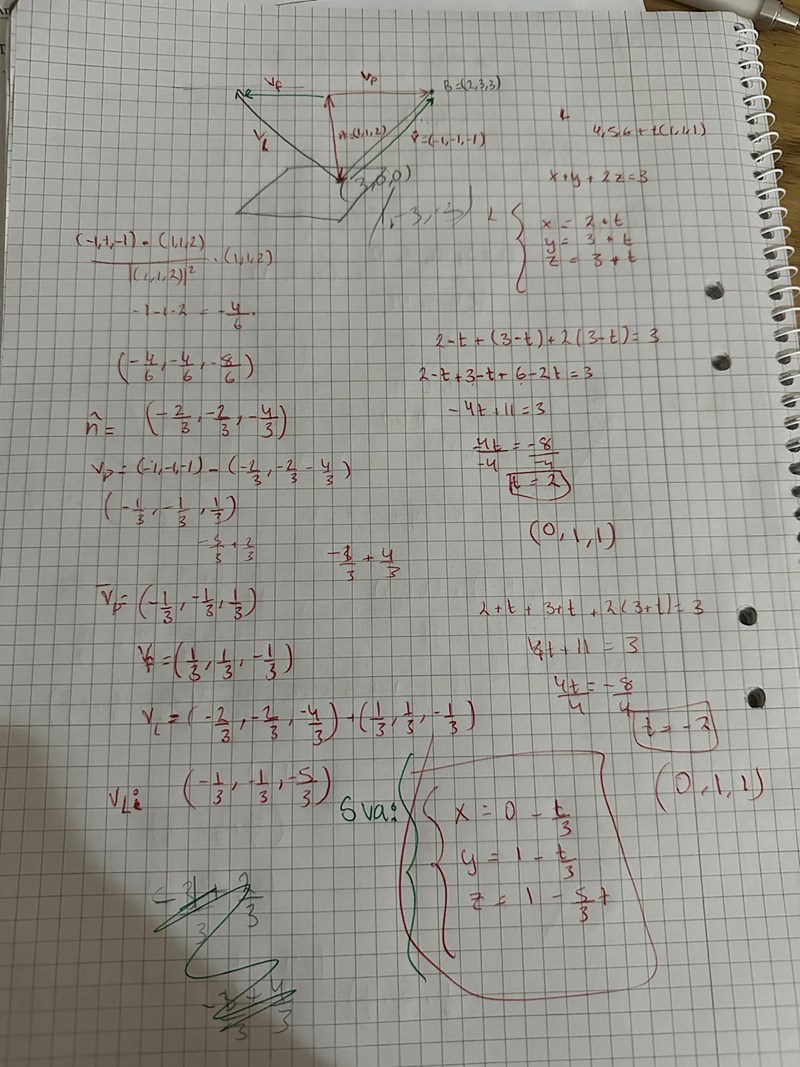 V_f
V_p
B=(2,3,3)
V_L
n=(1,1,2)
V=(-1,-1,-1)
(3,0,0)
4,5,6+t(1,1,1)
x+y+2z=3
L { x = 2+t
y = 3+t
z = 3+t
(-1,-1,-1) • (1,1,2) / |(1,1,2)|² · (1,1,2)
-1-1-2 = -4/6.
(-4/6, -4/6, -8/6)
n̂= (-2/3, -2/3, -4/3)
V_p = (-1,-1,-1) - (-2/3, -2/3 -4/3)
(-1/3, -1/3, 1/3)
-3/3 + 2/3
-3/3 + 4/3
V̅_p= (-1/3, -1/3, 1/3)
V_f=(1/3, 1/3, -1/3)
V_L = (-2/3, -2/3, -4/3)+(1/3, 1/3, -1/3)
V_L: (-1/3, -1/3, -5/3)
2-t + (3-t)+2(3-t)=3
2-t+3-t+6-2t=3
-4t+11=3
4t/-4 = -8/-4
t=2
(0,1,1)
2+t + 3+t + 2(3+t)=3
4t+11 = 3
4t/4 = -8/4
t=-2
(0,1,1)
Sva: { x = 0 - t/3
y = 1 - t/3
z = 1 - 5/3 t